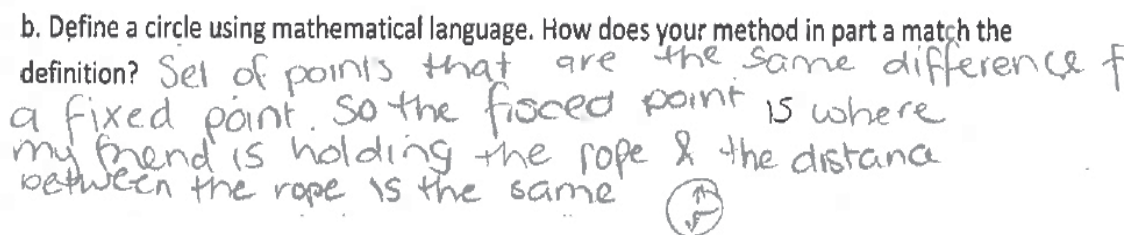 b. Define a circle using mathematical language. How does your method in part a match the
definition? Set of points that are the same difference f
a fixed point. So the fixced point is where
my friend is holding the rope & the distance
between the rope is the same